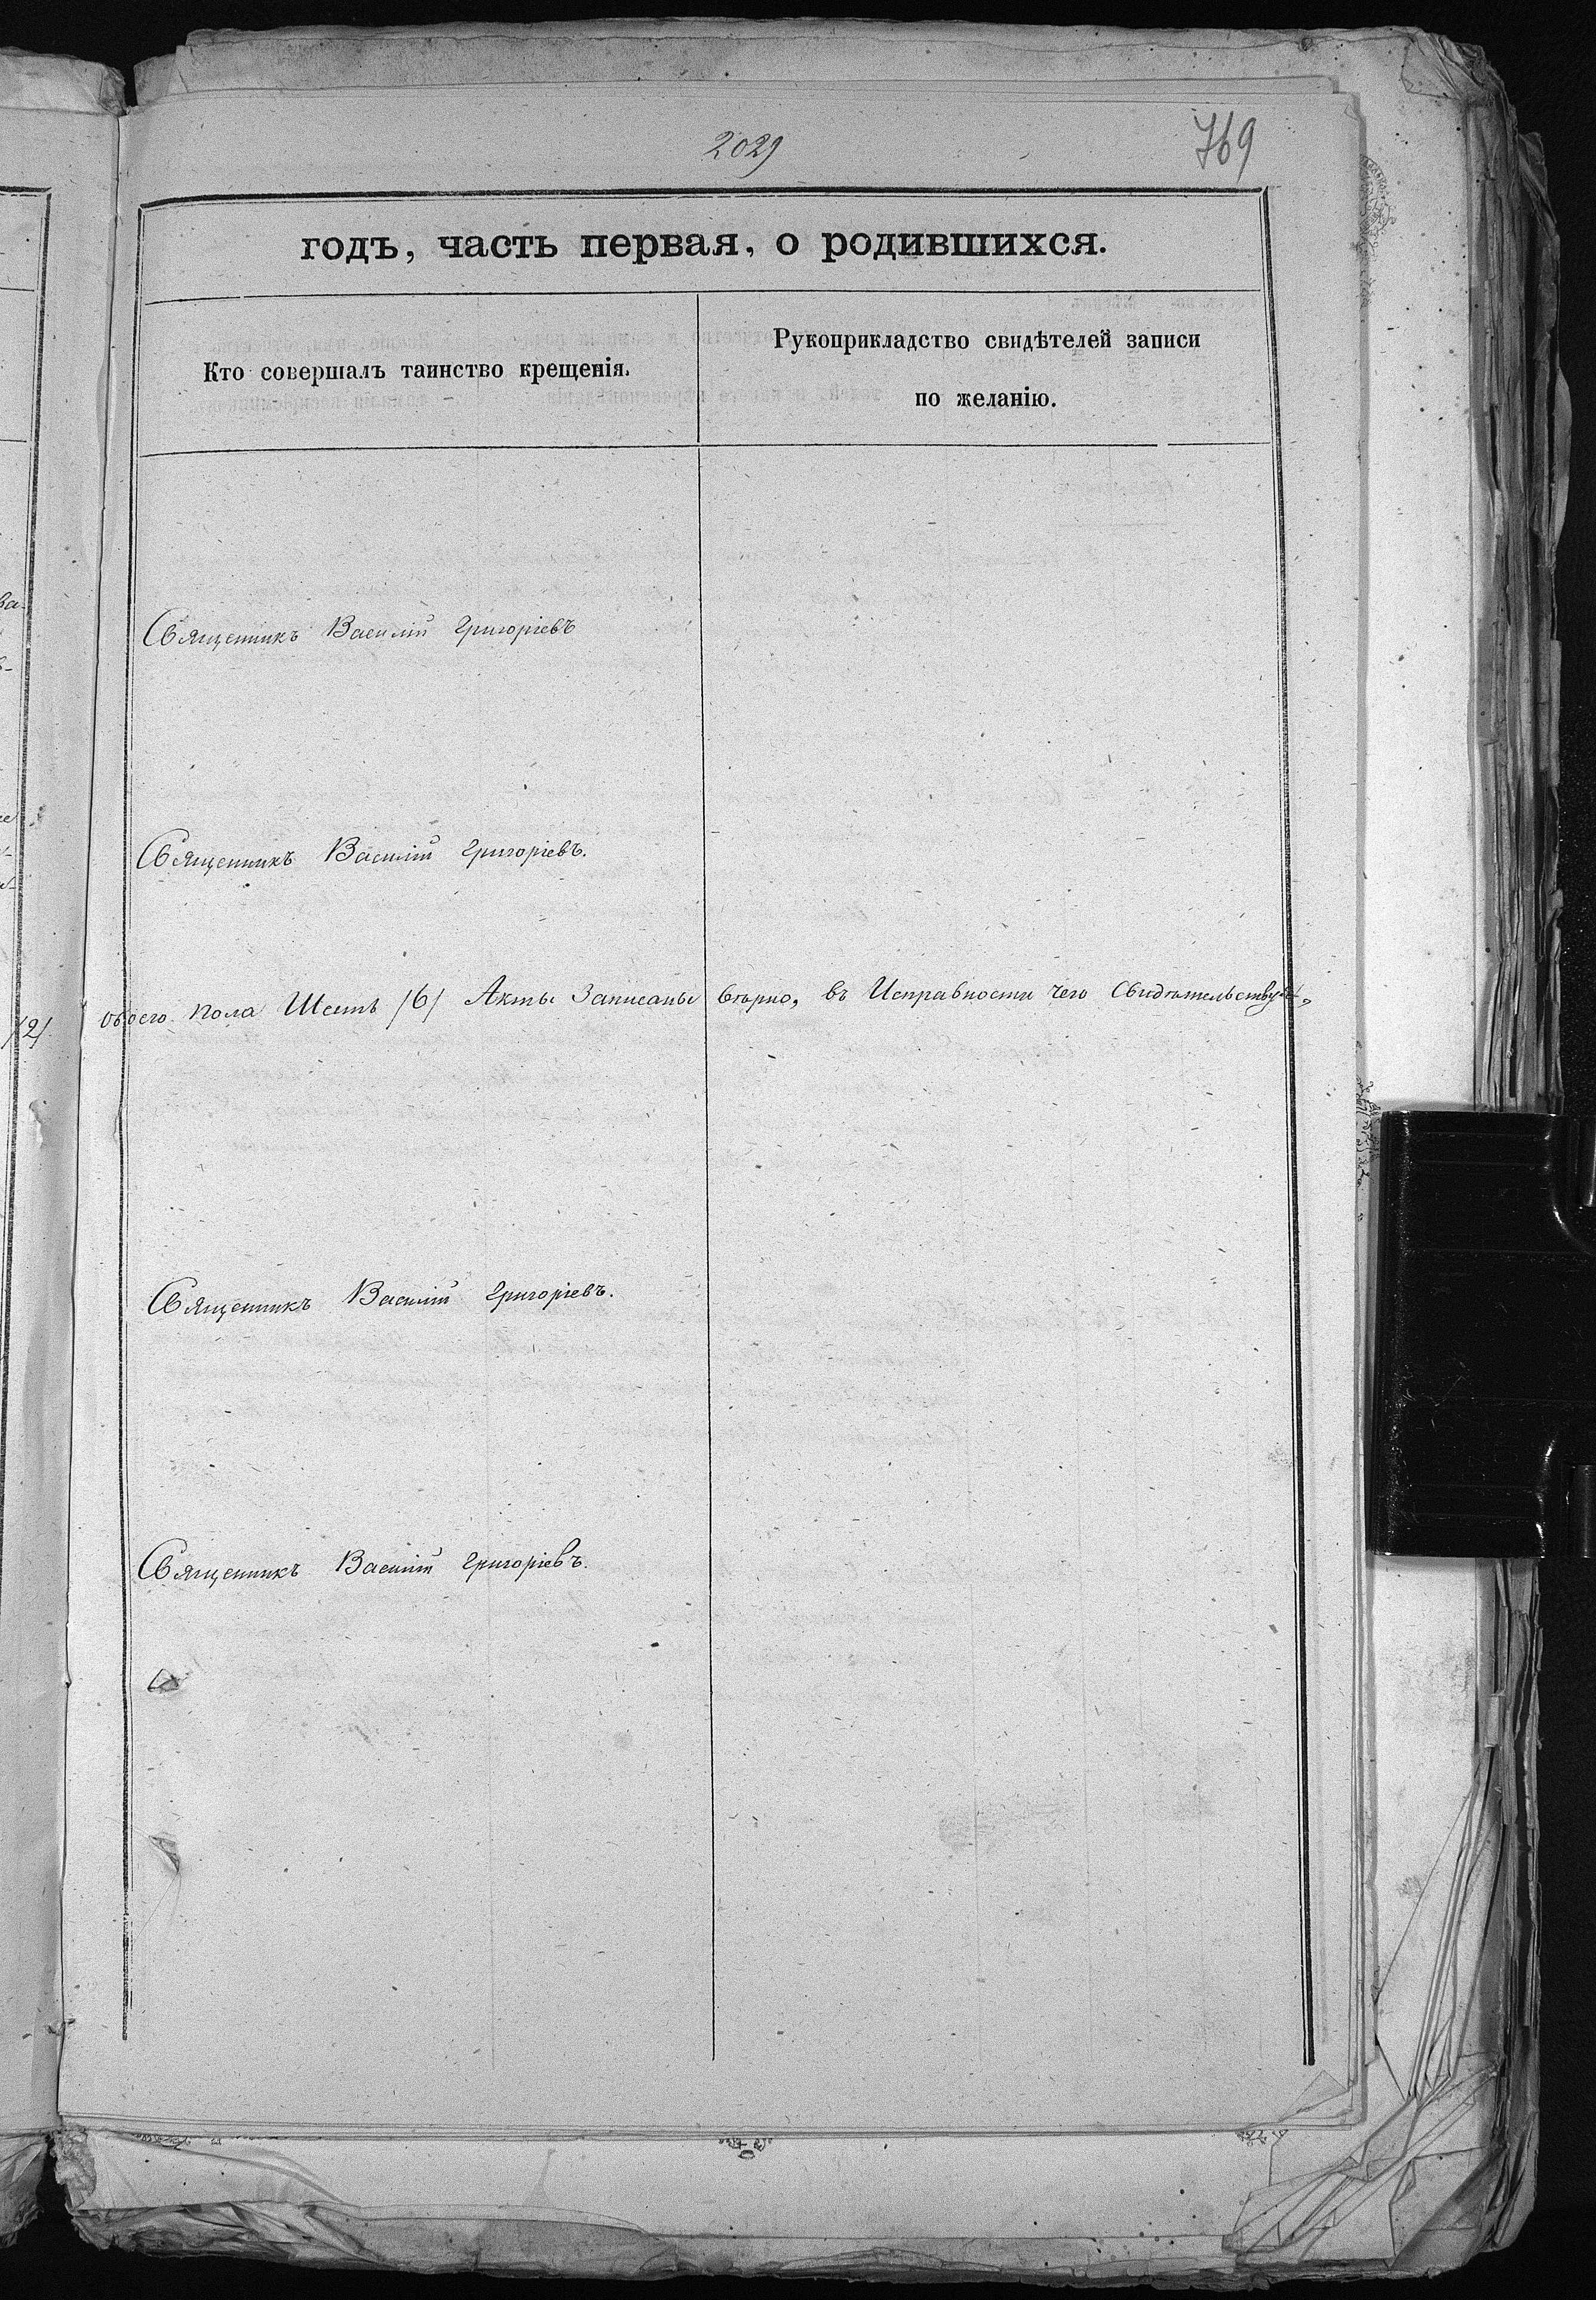 2029
769
годъ, часть первая, о родившихся.
Кто совершалъ таинство крещенія.
Рукоприкладство свидѣтелей записи
по желанію.
Священникъ Василій Григоріевъ
Священникъ Василій Григоріевъ.
/2/ обоего пола Шесть /6/ Акты Записаны вѣрно, въ Исправности чего Свидѣтельствуютъ,
Священникъ Василій Григоріевъ.
Священникъ Василій Григоріевъ.